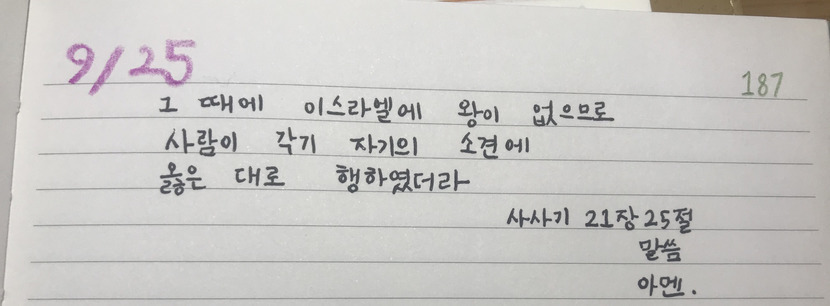 9/25
187
그 때에 이스라엘에 왕이 없으므로
사람이 각기 자기의 소견에
옳은 대로 행하였더라
사사기 21장 25절
말씀
아멘.